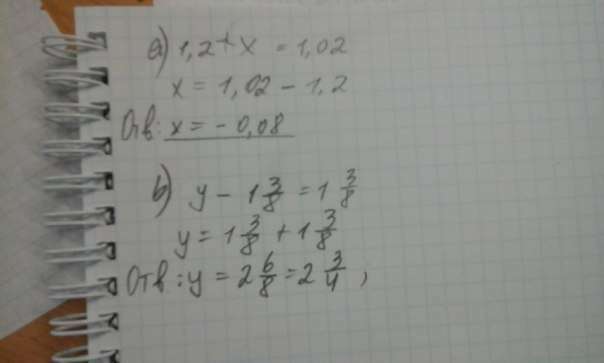 а) 1,2 + x = 1,02
x = 1,02 - 1,2
Отв: x = - 0,08
b) y - 1 3/8 = 1 3/8
y = 1 3/8 + 1 3/8
Отв: y = 2 6/8 = 2 3/4 ,